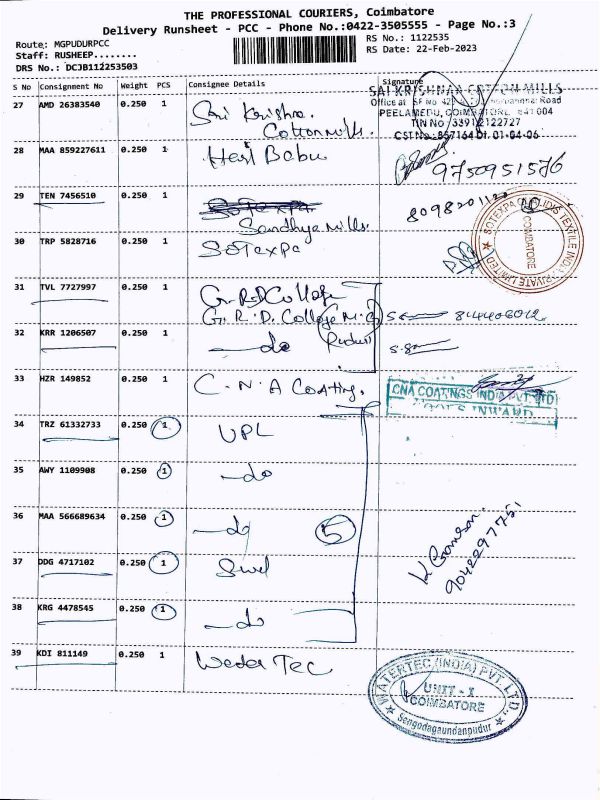 THE PROFESSIONAL COURIERS, Coimbatore
Delivery Runsheet - PCC - Phone No.:0422-3505555 - Page No.:3
Route: MGPUDURPCC
RS No.: 1122535
Staff: RUSHEEP........
RS Date: 22-Feb-2023
DRS No.: DCJB112253503
S No Consignment No Weight PCS Consignee Details Signature
27 AMD 26383540 0.250 1 Sri Krishna.
Cotton Mills.
SAI KRISHNAA COTTON MILLS
PEELAMEDU, COIMBATORE, 641 004
TIN No 33912122727
CST No: 857164 Dt. 01-04-06
28 MAA 859227611 0.250 1 Hari Babu
9750951576
29 TEN 7456510 0.250 1 Sotexpa
Sandhya Mills.
30 TRP 5828716 0.250 1 Sotexpa
SOTEXPA QUALIDIS TEXTILE INDIA PRIVATE LIMITED
COIMBATORE
31 TVL 7727997 0.250 1 G.R.D College
G.R.D. College M.G
Pudur
32 KRR 1206507 0.250 1 do
33 HZR 149852 0.250 1 C.N.A Coating.
CNA COATINGS INDIA PVT LTD
INWARD
34 TRZ 61332733 0.250 1 UPL
35 AWY 1109908 0.250 1 do
36 MAA 566689634 0.250 1 do 5
37 DDG 4717102 0.250 1
38 KRG 4478545 0.250 1 do
9042297751
39 KDI 811149 0.250 1 Water Tec
WATERTEC (INDIA) PVT. LTD.,
UNIT - I
COIMBATORE
Sengodagaundanpudur